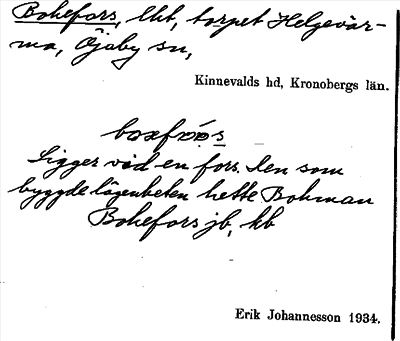 Bokefors, lht, torpet Helgevär-
ma, Öjaby sn,
Kinnevalds hd, Kronobergs län.
Ligger vid en fors. Den som
byggde lägenheten hette Bohman
Bokefors jb, kb
Erik Johannesson 1934.